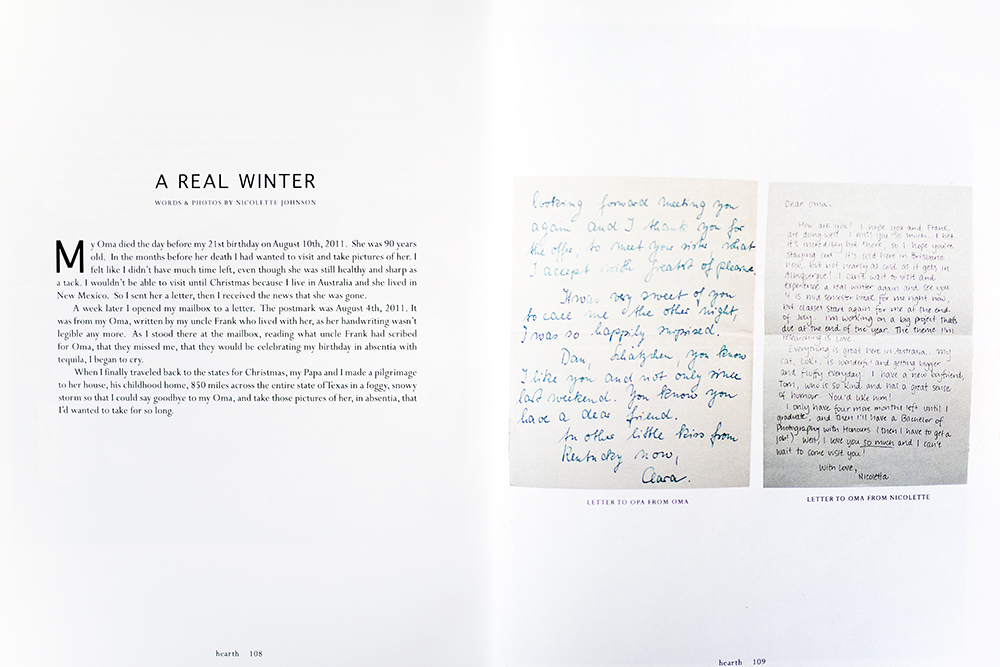 A REAL WINTER
WORDS & PHOTOS BY NICOLETTE JOHNSON
My Oma died the day before my 21st birthday on August 10th, 2011. She was 90 years
old. In the months before her death I had wanted to visit and take pictures of her. I
felt like I didn't have much time left, even though she was still healthy and sharp as
a tack. I wouldn't be able to visit until Christmas because I live in Australia and she lived in
New Mexico. So I sent her a letter, then I received the news that she was gone.
A week later I opened my mailbox to a letter. The postmark was August 4th, 2011. It
was from my Oma, written by my uncle Frank who lived with her, as her handwriting wasn't
legible any more. As I stood there at the mailbox, reading what uncle Frank had scribed
for Oma, that they missed me, that they would be celebrating my birthday in absentia with
tequila, I began to cry.
When I finally traveled back to the states for Christmas, my Papa and I made a pilgrimage
to her house, his childhood home, 850 miles across the entire state of Texas in a foggy, snowy
storm so that I could say goodbye to my Oma, and take those pictures of her, in absentia, that
I'd wanted to take for so long.
hearth 108
looking forward meeting you
again and I thank you for
the offer, to meet your sister, what
I accept with greatest of pleasure.
It was very sweet of you
to call me the other night,
I was so happily surprised.
Dan, Schatzchen, you know
I like you and not only since
last weekend. You know you
have a dear friend.
An other little kiss from
Kentucky now,
Clara.
LETTER TO OPA FROM OMA
Dear Oma,
How are you? I hope you and Frank
are doing well. I miss you so much. I bet
it's incredibly hot there, so I hope you're
staying cool. It's cold here in Brisbane
now, but not nearly as cold as it gets in
Albuquerque! I can't wait to visit and
experience a real winter again and see you.
It is mid semester break for me right now,
but classes start again for me at the end
of July. I'm working on a big project that's
due at the end of the year. The theme I'm
researching is Love.
Everything is great here in Australia. My
cat, Loki, is wonderful and getting bigger
and fluffy everyday. I have a new boyfriend,
Tom, who is so kind and has a great sense
of humour. You'd like him!
I only have four more months left until I
graduate, and then I'll have a Bachelor of
Photography with Honours (then I have to get a
job!). Well, I love you so much and I can't
wait to come visit you!
With Love,
Nicoletta
LETTER TO OMA FROM NICOLETTE
hearth 109